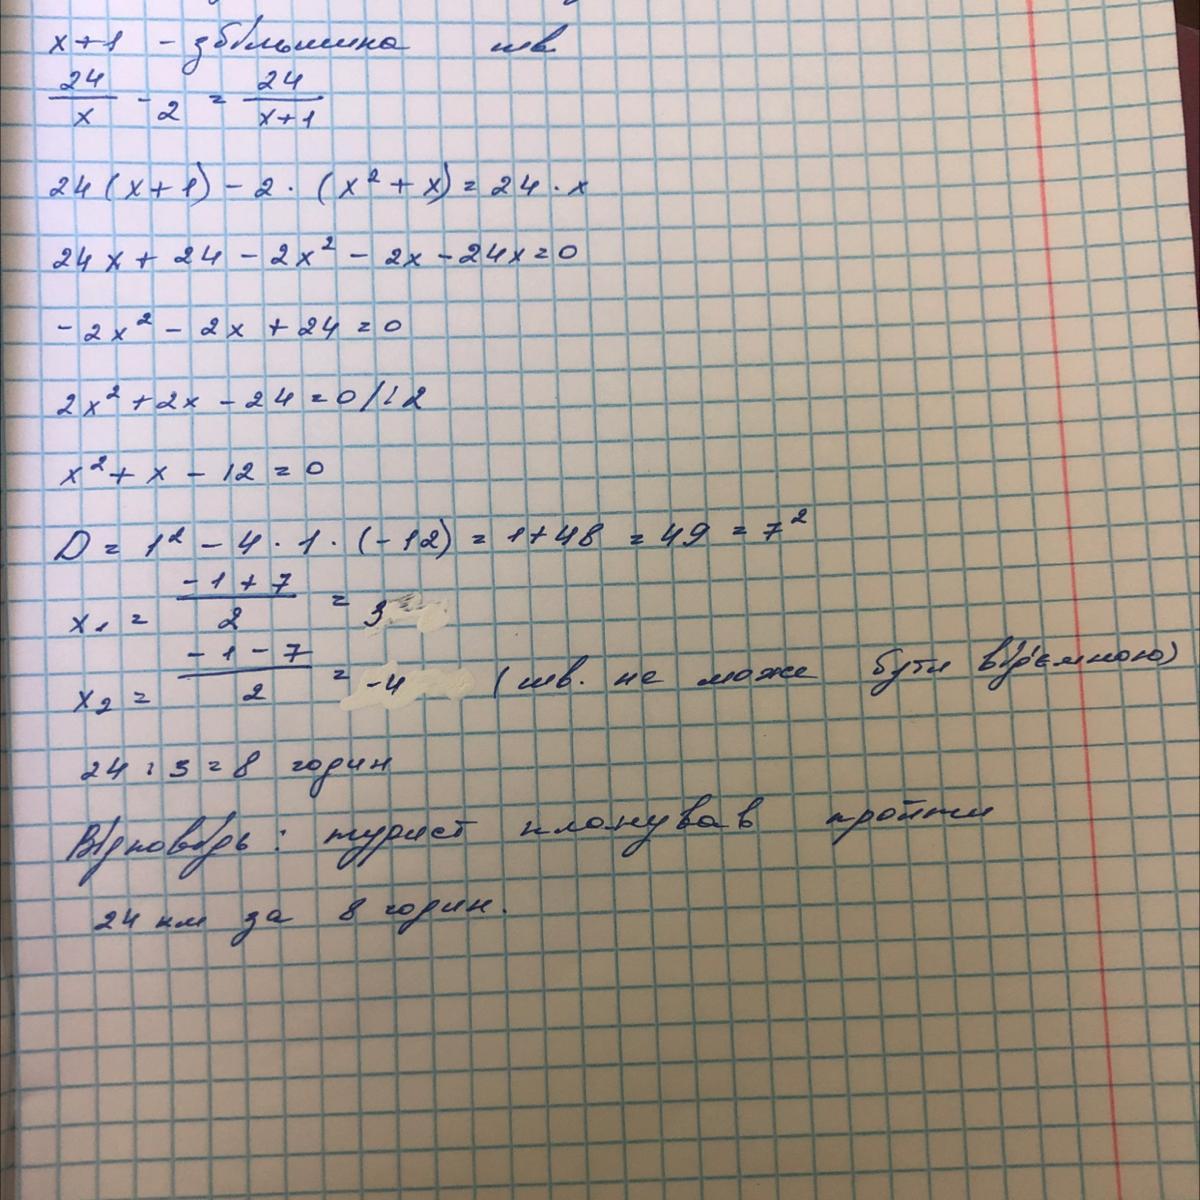 x+1 - збільшина шв
24/x - 2 = 24/x+1
24(x+1) - 2 · (x² + x) = 24 · x
24x + 24 - 2x² - 2x - 24x = 0
-2x² - 2x + 24 = 0
2x² + 2x - 24 = 0 /:2
x² + x - 12 = 0
D = 1² - 4 · 1 · (-12) = 1+48 = 49 = 7²
x₁ = -1+7/2 = 3
x₂ = -1-7/2 = -4 (шв. не може бути від'ємною)
24 : 3 = 8 годин
Відповідь: турист планував пройти
24 км за 8 годин.